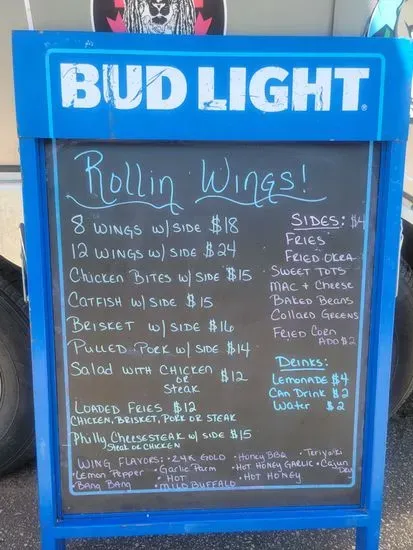 BUD LIGHT
Rollin Wings!
8 WINGS W/ SIDE $18
12 WINGS W/ SIDE $24
CHICKEN BITES W/ SIDE $15
CATFISH W/ SIDE $15
BRISKET W/ SIDE $16
PULLED PORK W/ SIDE $14
SALAD WITH CHICKEN
OR
STEAK
$12
LOADED FRIES $12
CHICKEN, BRISKET, PORK OR STEAK
Philly CHEESESTEAK W/ SIDE $15
STEAK OR CHICKEN
SIDES: $4
FRIES
FRIED OKRA
SWEET TOTS
MAC + CHEESE
BAKED BEANS
COLLARD GREENS
FRIED CORN
ADD $2
DRINKS:
LEMONADE $4
CAN DRINK $2
WATER $2
WING FLAVORS: • 24K GOLD • HONEY BBQ • TERIYAKI
• LEMON PEPPER • GARLIC PARM • HOT HONEY GARLIC • CAJUN
• BANG BANG • HOT • HOT HONEY
• MILD BUFFALO